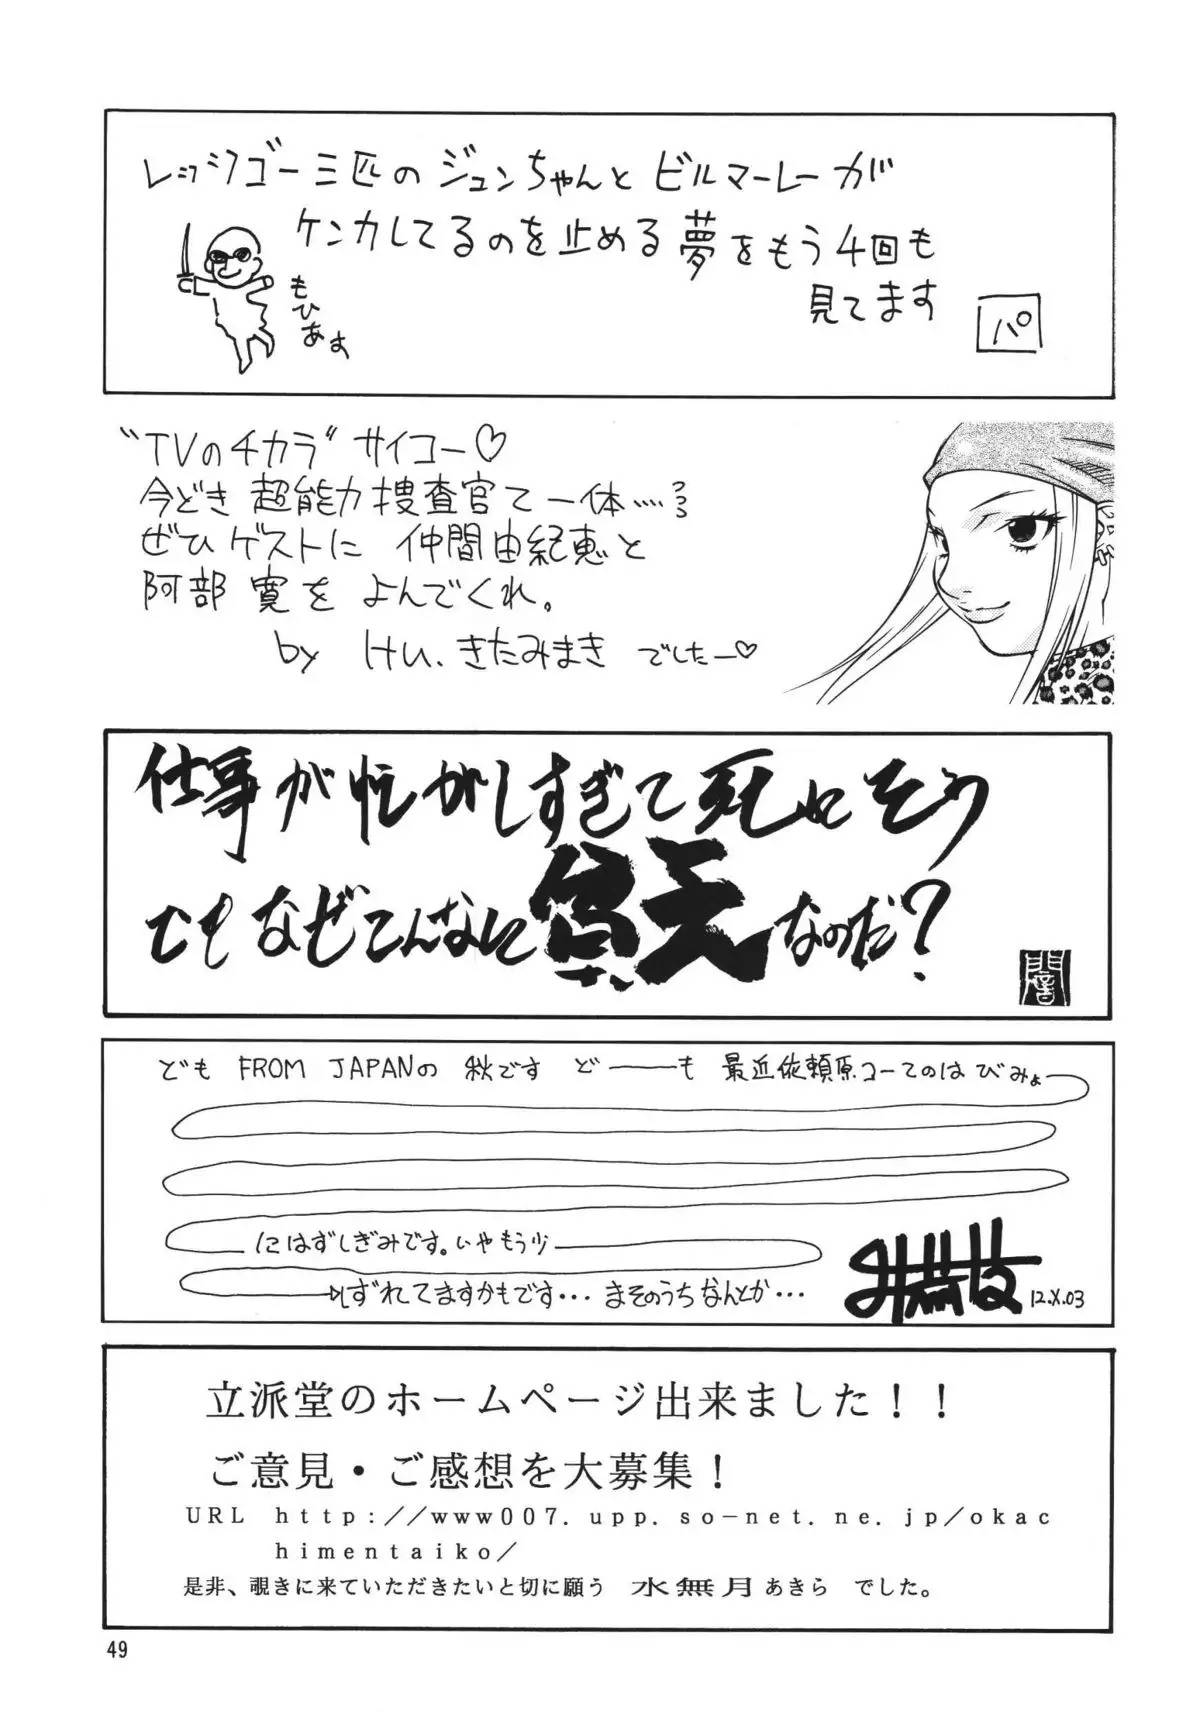 レツゴー三匹のジュンちゃんと ビルマーレーが
ケンカしてるのを止める夢をもう4回も
見てます
パ
もひ
"TVのチカラ"サイコー♡
今どき 超能力捜査官て一体…
ぜひゲストに 仲間由紀恵と
阿部 寛を よんでくれ。
by Hu. きたみまき でしたー♡
仕事が忙がしすぎて死にそう
でもなぜこんなに貧乏なのだ?
闇
ども FROM JAPANの 秋です どーーも 最近依頼原コーてのは びみょ
にはずしぎみです。いやもう少
しずれてますかもです… まそのうちなんとか…
12.X.03
立派堂のホームページ出来ました!!
ご意見・ご感想を大募集!
URL http://www007.upp.so-net.ne.jp/okac
himentaiko/
是非、覗きに来ていただきたいと切に願う 水無月あきら でした。
49